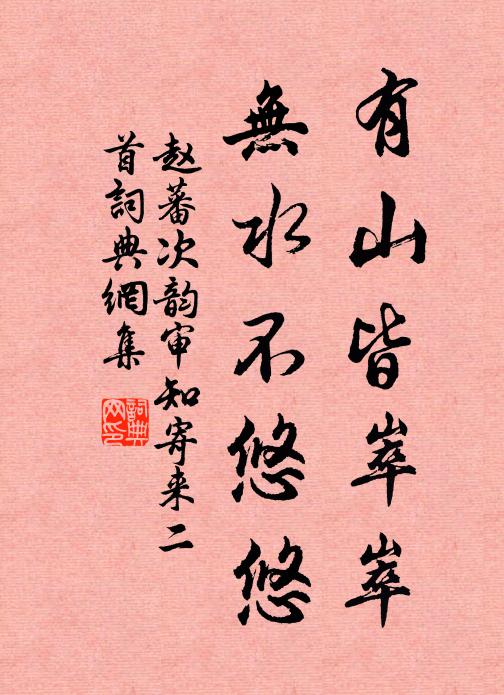 有山皆崒崒
無水不悠悠
赵蕃次韵审知寄来二
首詞典網集
詞典
网印